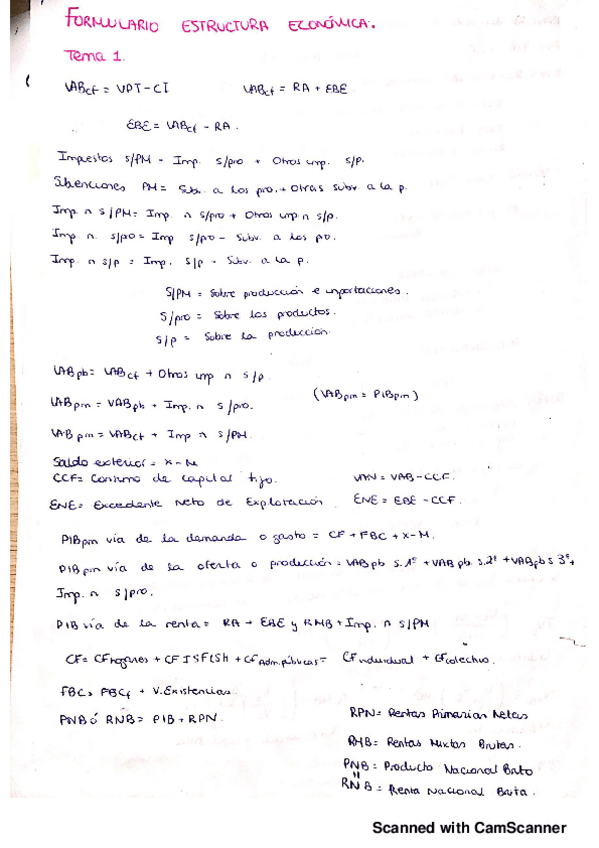 FORMULARIO ESTRUCTURA ECONÓMICA.
Tema 1.
VABcf = VPT - CI VABcf = RA + EBE
EBE = VABcf - RA.
Impuestos s/PM = Imp. s/pro + Otros imp. s/p.
Subvenciones PM = Subv. a los pro. + Otras subv. a la p.
Imp n s/PM = Imp. n s/pro + Otros imp n s/p.
Imp n. s/pro = Imp s/pro - Subv. a los pro.
Imp. n s/p = Imp. s/p - Subv. a la p.
S/PM = Sobre producción e importaciones.
S/pro = Sobre los productos.
S/p = Sobre la producción.
VABpb = VABcf + Otros imp n s/p
VABpm = VABpb + Imp. n s/pro. (VABpm = PIBpm)
VABpm = VABcf + Imp n s/PM.
Saldo exterior = X - M
CCF = Consumo de capital fijo. VAN = VAB - CCF.
ENE = Excedente Neto de Explotación ENE = EBE - CCF.
PIBpm vía de la demanda o gasto = CF + FBC + X - M.
PIBpm vía de la oferta o producción = VABpb s.1º + VABpb s.2º + VABpb s 3º +
Imp. n s/pro.
PIB vía de la renta = RA + EBE y RMB + Imp. n s/PM
CF = CFhogares + CF ISFLSH + CFAdm.públicas = CFindividual + CFcolectivo.
FBC = FBCf + V.Existencias.
PNB ó RNB = PIB + RPN. RPN = Rentas Primarias Netas
RMB = Rentas Mixtas Brutas.
PNB = Producto Nacional Bruto
"
RNB = Renta Nacional Bruta.
Scanned with CamScanner